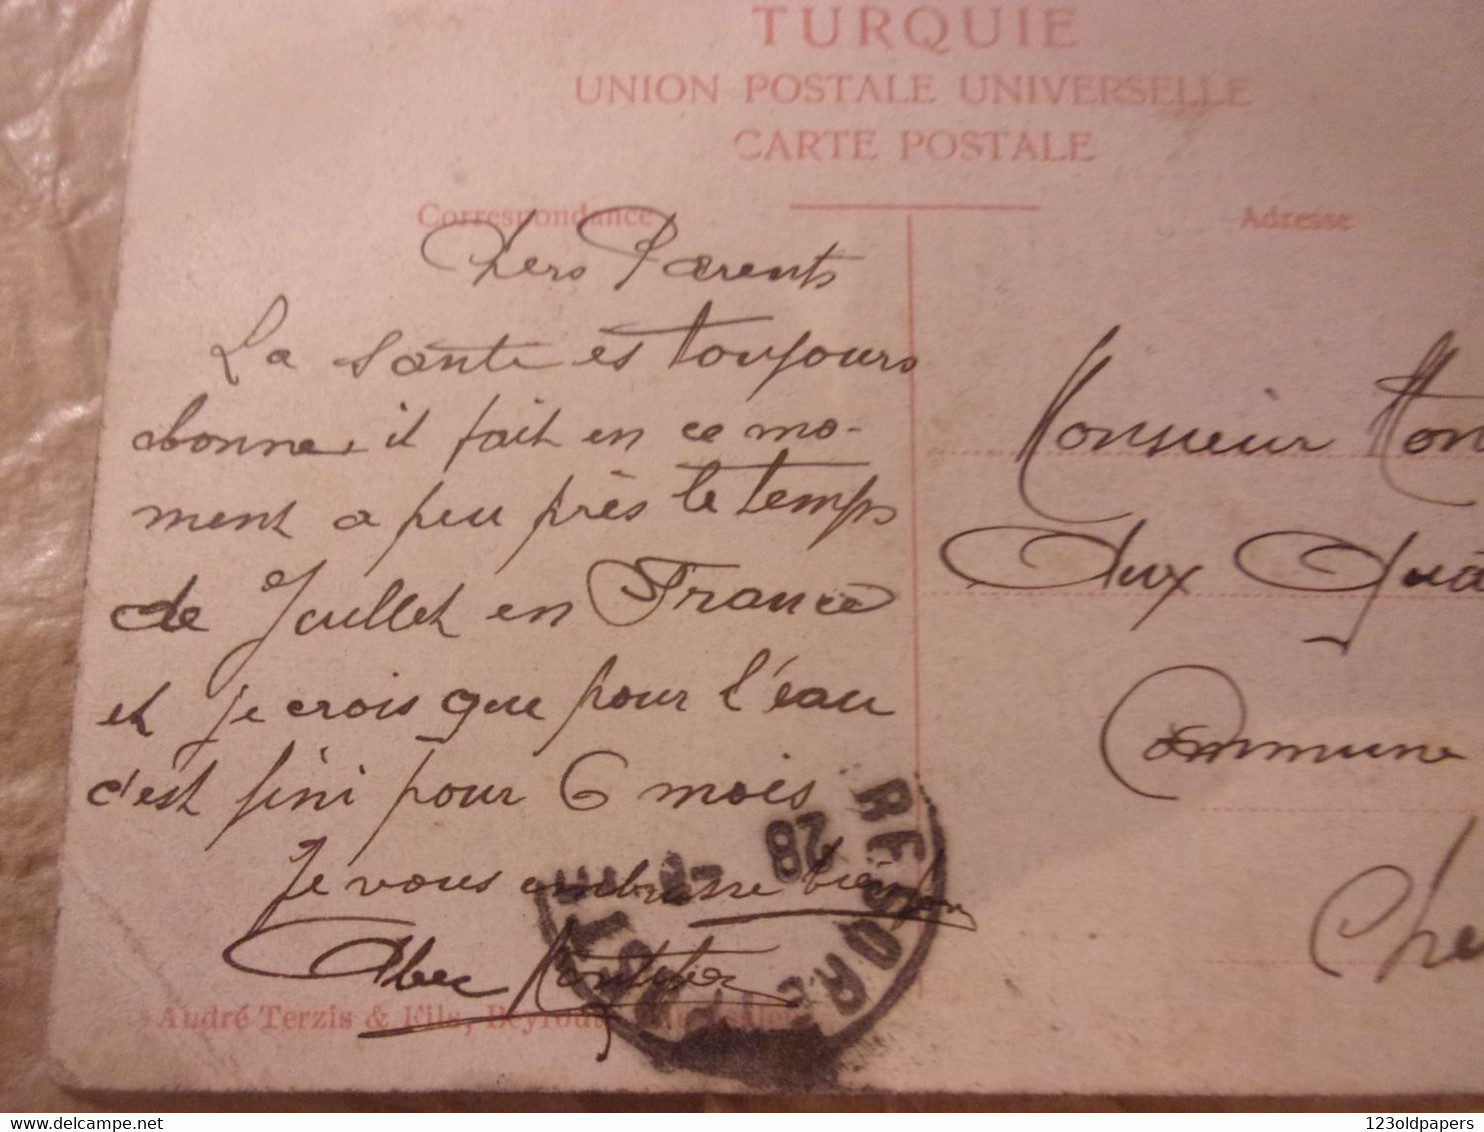 TURQUIE
UNION POSTALE UNIVERSELLE
CARTE POSTALE
Correspondance
Adresse
Chers Parents
La santé es toujours
bonne, il fait en ce mo-
ment a peu près le temps
de Juillet en France
et je crois que pour l'eau
c'est fini pour 6 mois
Je vous embrasse bien fort
Monsieur
Aux
Commune
André Terzis & Fils, Beyrouth
TRESOR ET POSTES
28
123oldpapers